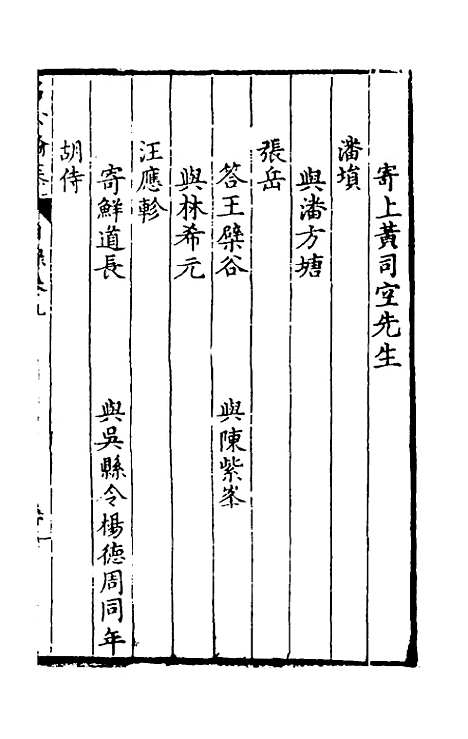 寄上黃司空先生
潘塤
與潘方塘
張岳
答王檗谷 與陳紫峯
與林希元
汪應軫
寄鮮道長 與吳縣令楊德周同年
胡侍